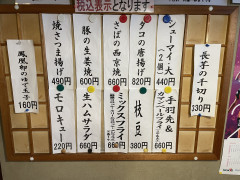 税込表示となります。
長芋の千切り
330円
シューマイ・大
(2個)
440円
タコの唐揚げ
480円
さばの西京焼
660円
豚の生姜焼
600円
焼きつま揚げ
490円
鳳凰卵のゆで玉子
160円
手羽先&
660円
枝豆
380円
ミックスフライ
660円
生ハムサラダ
660円
モロキュー
220円